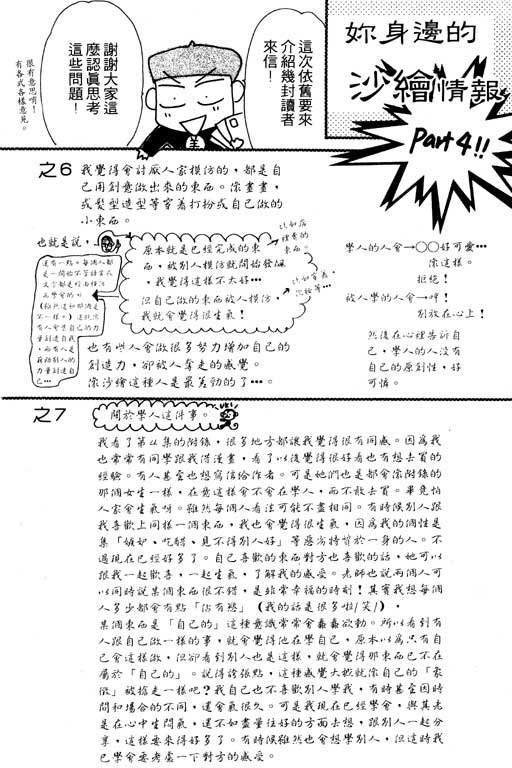 妳身邊的
沙繪情報
Part 4!!
這次依舊要來
介紹幾封讀者
來信！
謝謝大家這
麼認真思考
這些問題！
很有意思唷！
有各式各樣意見。
之6
我覺得會討厭人家模仿的，都是自
己用創意做出來的東西。像畫畫，
或髮型造型等穿著打扮或自己做的
小東西。
也就是說，
原本就是已經完成的東
西，被別人模仿就開始發飆
，我覺得這樣不太好…
但自己做的東西被人模仿，
我就會覺得很生氣！
比如店
裡賣的
東西。
還有一點。每個人都
是一開始不管語言或
文字都是經由模仿
而學會的
力量創造自
己…
也有些人會做很多努力增加自己的
創造力，卻被人奪走的感覺。
像沙繪這種人是最差勁的了…。
學人的人會→○○好可愛…
像這樣。
拒絕！
被人學的人會→哼！
別放在心上！
然後在心裡告訴自
己，學人的人沒有
自己的原創性，好
可憐。
之7
關於學人這件事。
我看了第4集的附錄，很多地方都讓我覺得很有同感。因為我
也常常有同學跟我借漫畫，看了以後覺得很好看也有想去買的
經驗。有人甚至也想寫信給作者。可是她們也是都會像附錄的
那個女生一樣，在意這樣會不會在學人，而不敢去買。畢竟怕
人家會生氣呀。雖然每個人看法可能不盡相同。有時候別人跟
我喜歡上同樣一個東西，我也會覺得很生氣，因為我的個性是
集「嫉妒、吃醋、見不得別人好」等惡劣特質於一身的人。不
過現在已經好多了。自己喜歡的東西對方也喜歡的話，她可以
跟我一起歡喜，一起生氣，了解我的感受。老師也說兩個人可
以同時說某個東西很不錯，是非常幸福的時刻！其實我想每個
人多少都會有點「佔有慾」（我的話是很多啦/笑/），
某個東西是「自己的」這種意識常常會蠢蠢欲動。所以看到有
人跟自己做一樣的事，就會覺得他在學自己，原本以為只有自
己會這樣做，但卻看到別人也是這樣，就會覺得那東西已不在
屬於「自己的」。說得誇張點，這種感覺大概就像自己的「象
徵」被搶走一樣吧？我自己也不喜歡別人學我，有時甚至因時
間和場合的不同，還會氣很久。可是我現在已經學會，與其老
是在心中生悶氣，還不如盡量往好的方面去想，跟別人一起分
享，這樣要來得好多了。有時候雖然也會想學別人，但這時我
已學會要考慮一下對方的感受。